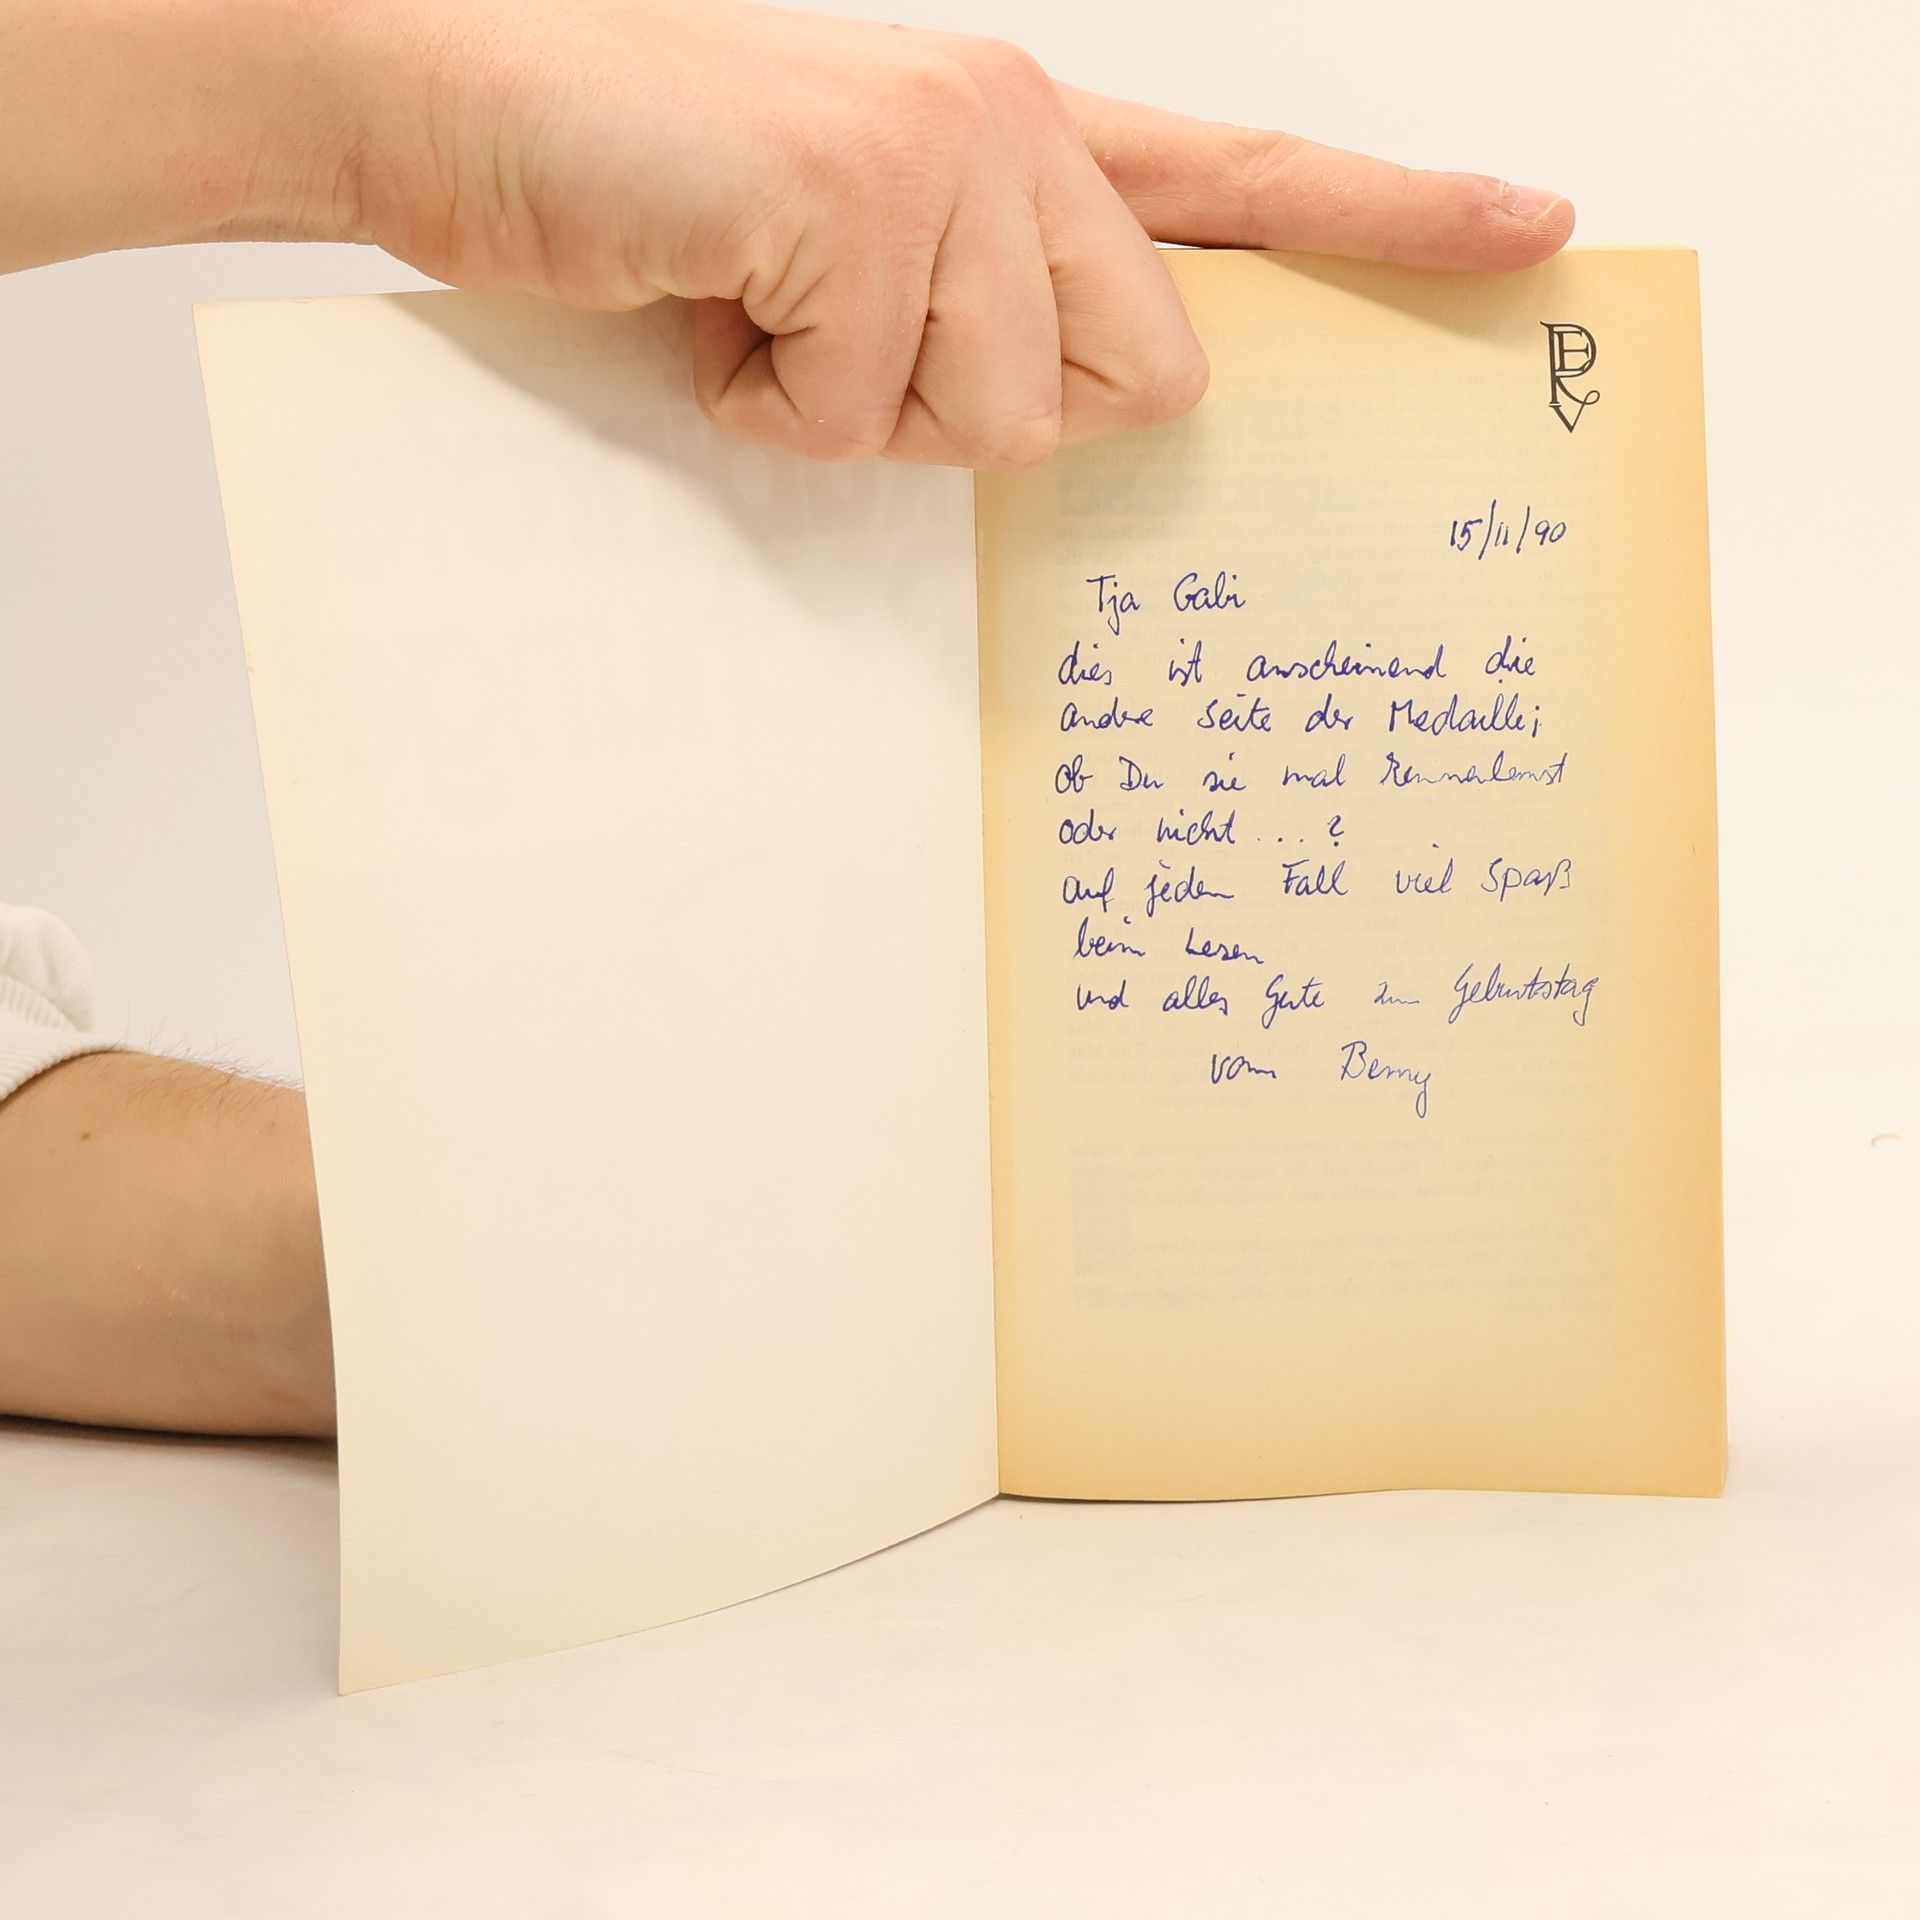 15/11/90
Tja Gabi
dies ist anscheinend die
andere Seite der Medaille;
ob Du sie mal kennenlernst
oder nicht . . . ?
auf jeden Fall viel Spaß
beim Lesen
und alles Gute zum Geburtstag
vom Benny